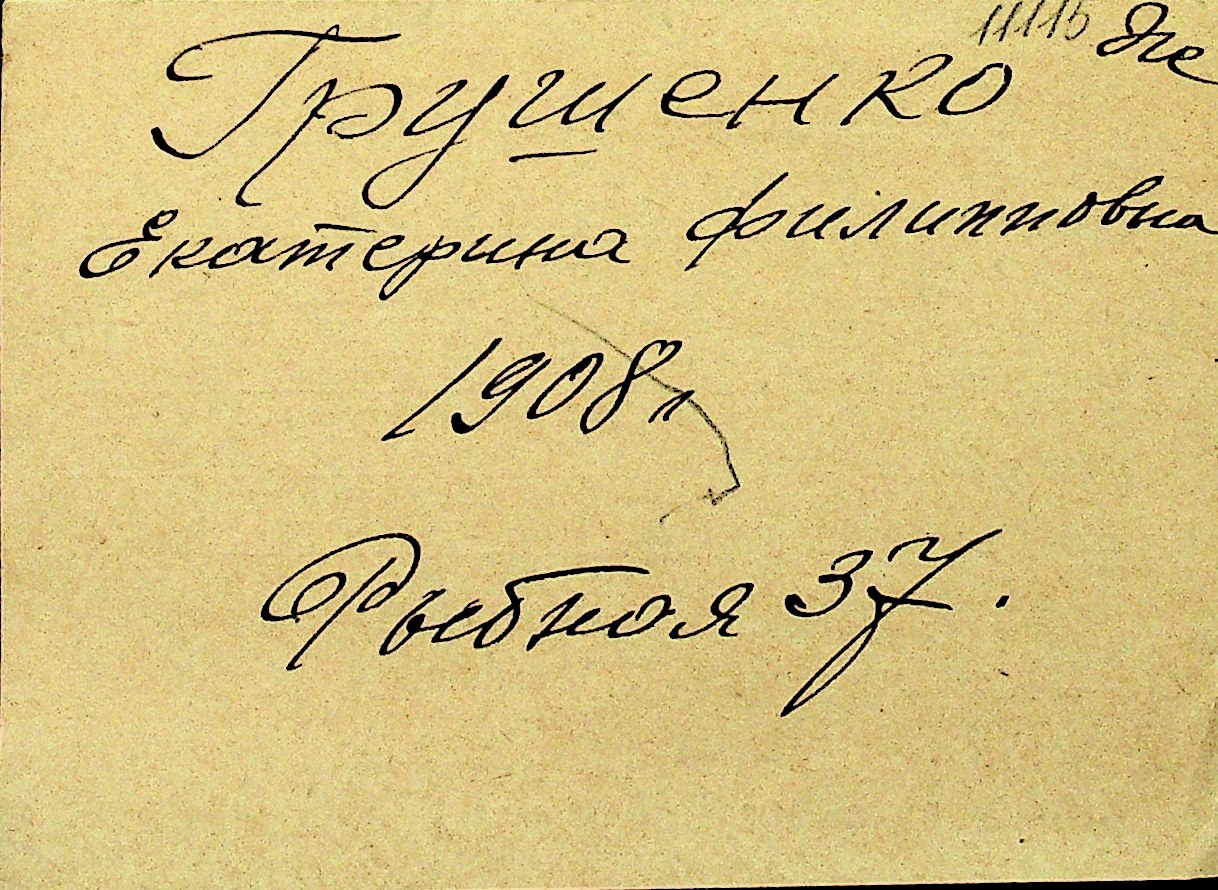 11115
Грушенко
Екатерина Филипповна
1908г
Рыбная 37.